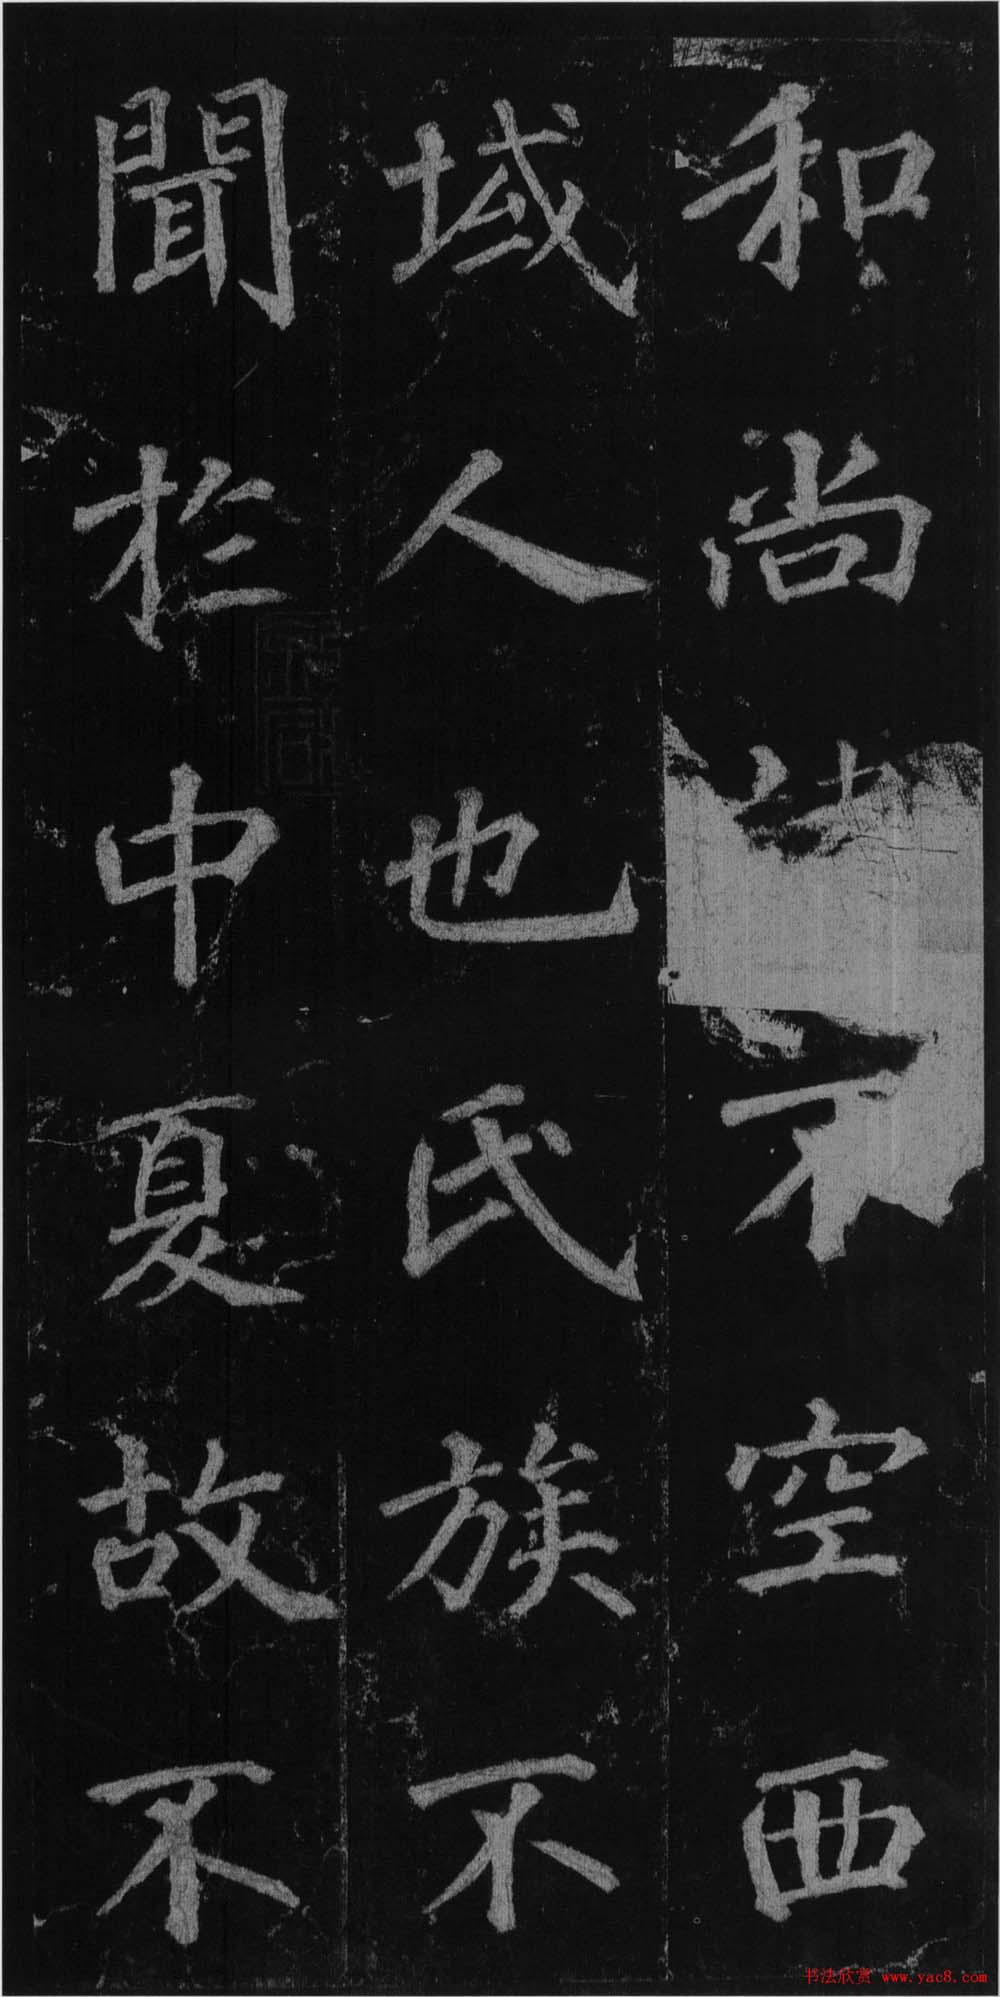 和尚不空西
域人也氏族不
聞於中夏故不
书法欣赏 www.yac8.com